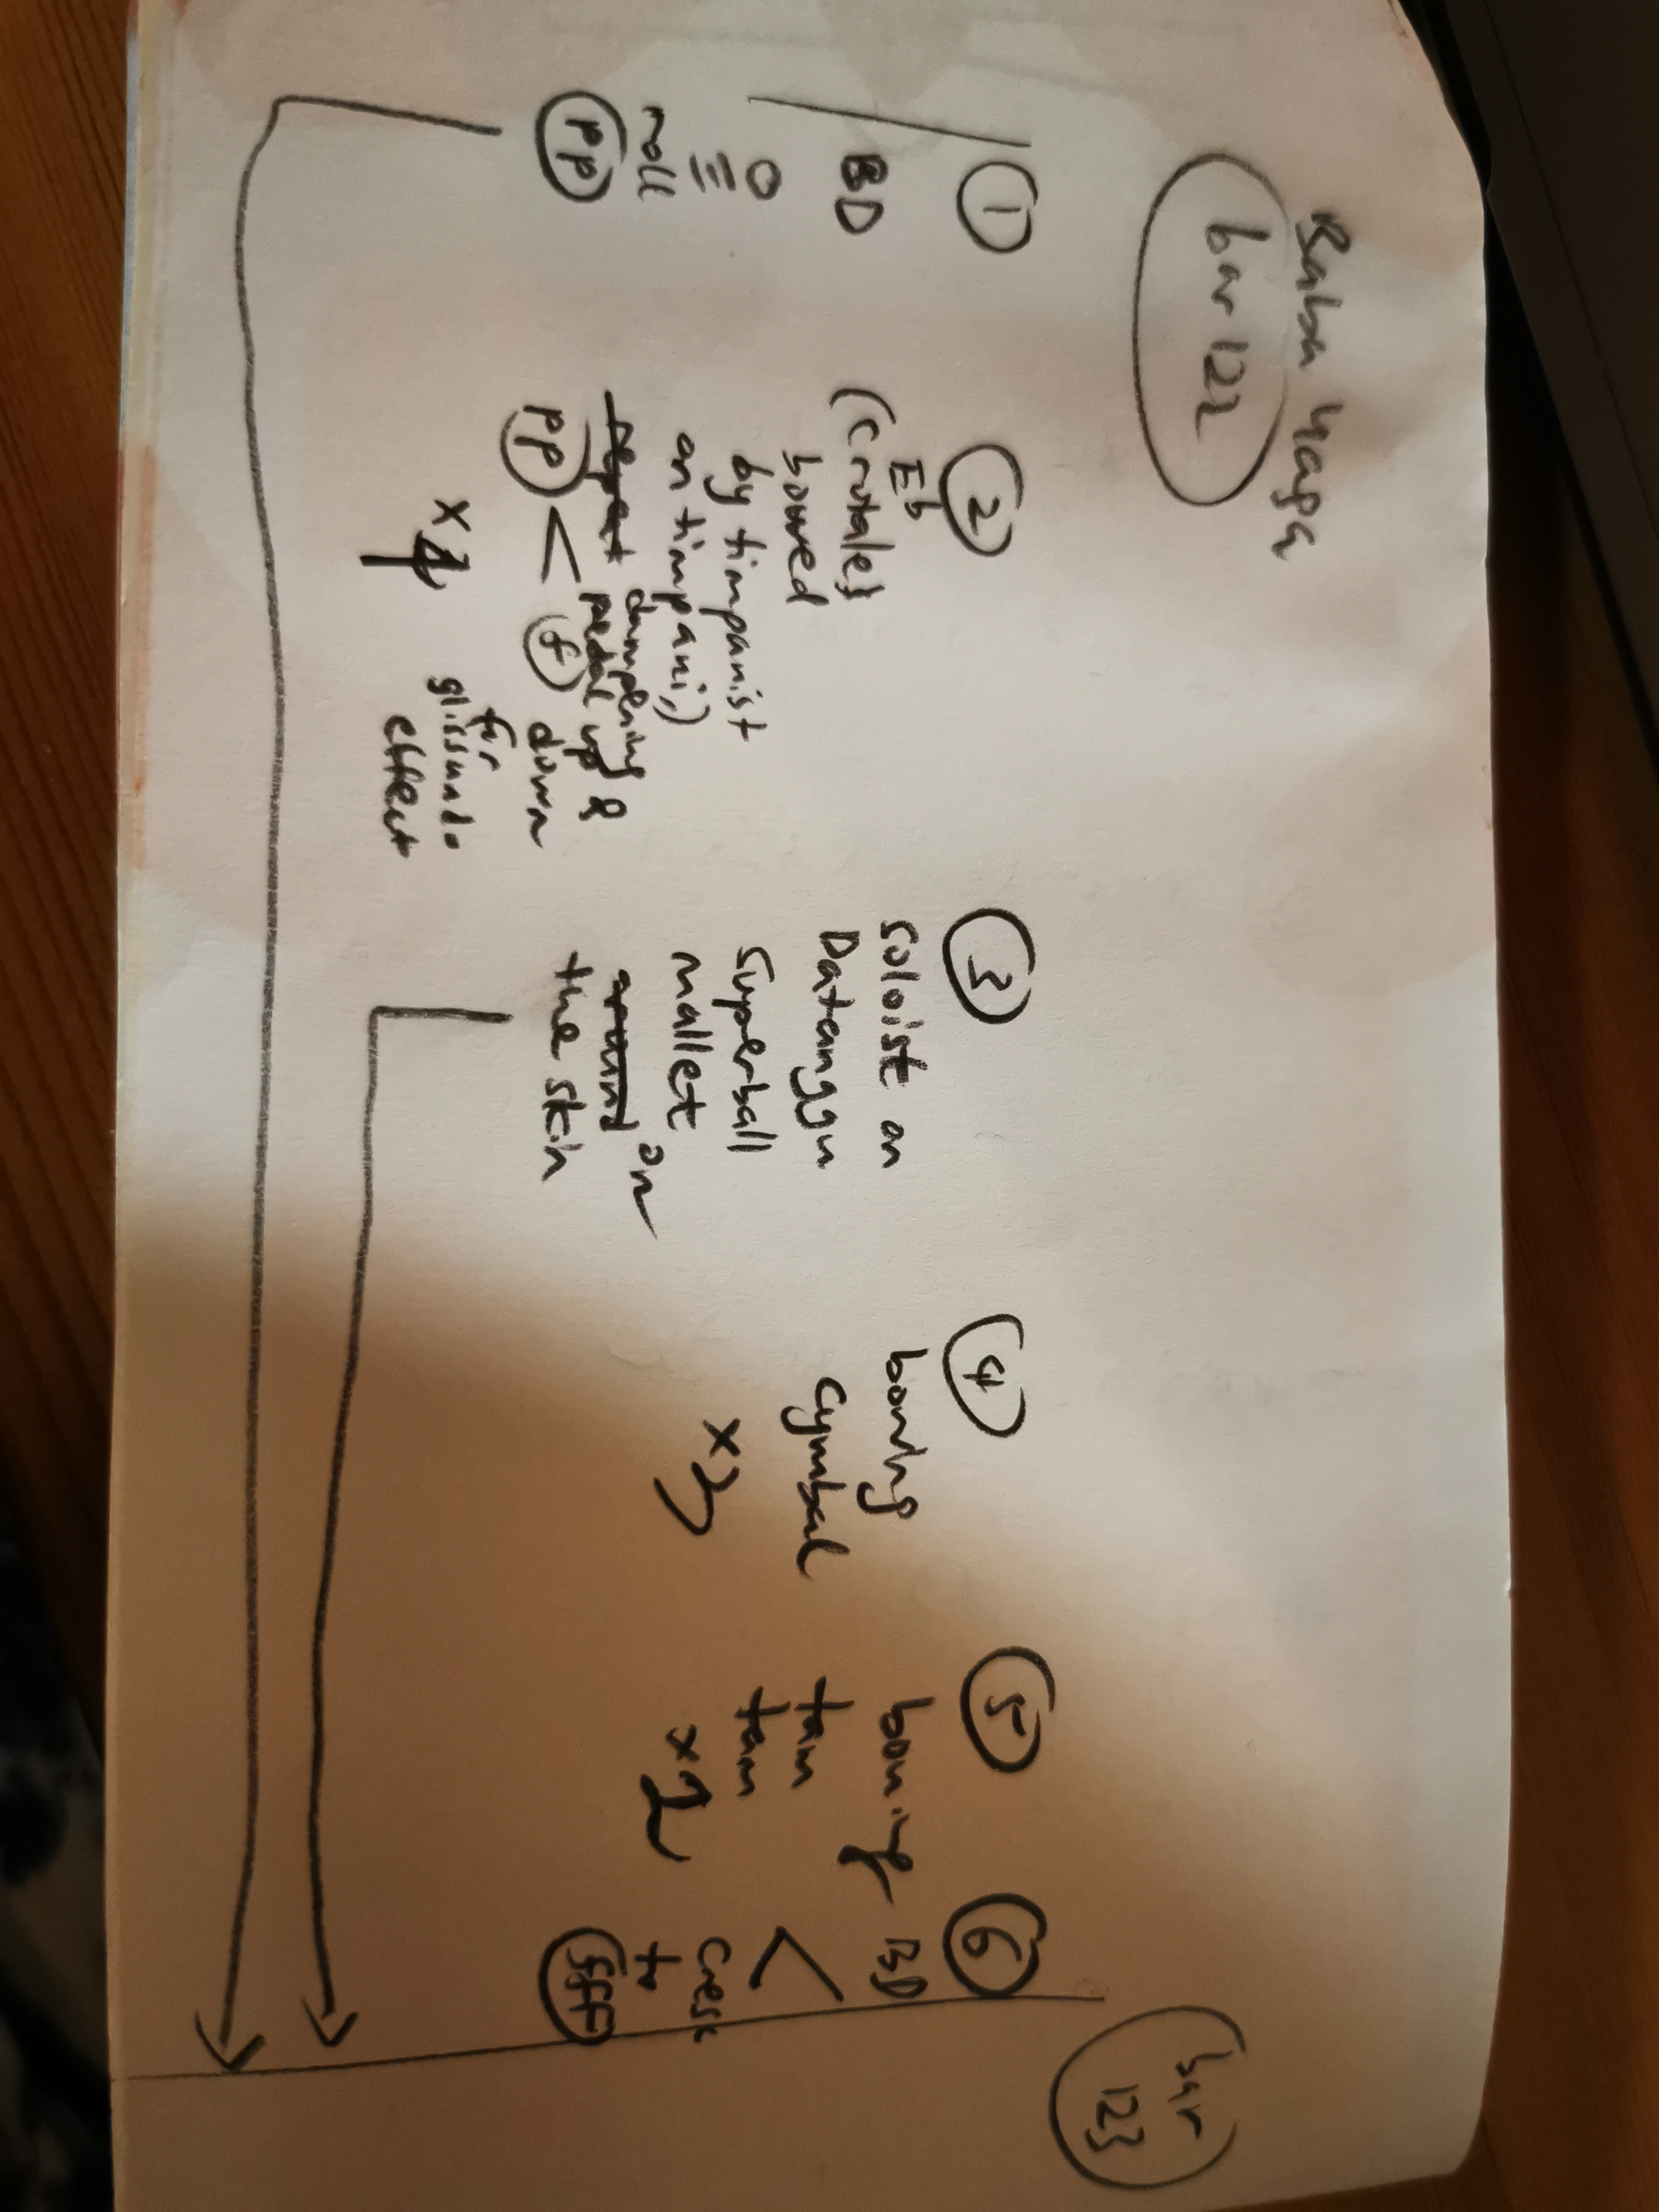 Baba Yaga
bar 122
1
BD
roll
pp
2
Eb
(Crotales
bowed
by timpanist
on timpani,)
repeat dampening &
pedal up
down
for
glissando
effect
pp < f
x4
3
Soloist on
Datanggu
Superball
mallet
around on
the skin
4
bowing
Cymbal
x3
5
bowing
tam
tam
x2
6
BD
<
cresc
to
fff
bar
123